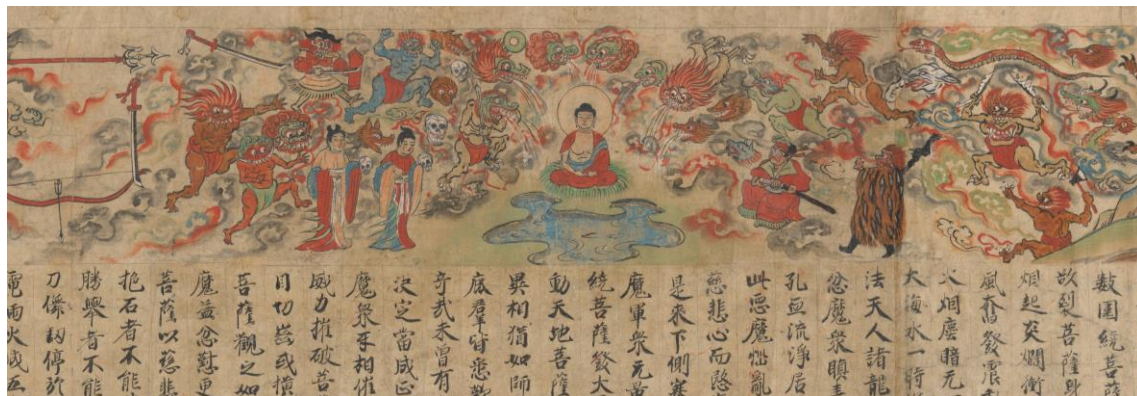 數圍繞菩薩
欲裂菩薩身
烟起炎爛衝
風奮發震
火烟塵暗无
大海水一時
法天人諸龍
忿魔衆瞋恚
孔血流淨居
此惡魔惱亂
慈悲心而愍
是來下側塞
魔軍衆无量
繞菩薩發大
動天地菩薩
異相猶如師
鹿羣皆悉歎
奇哉未曾有
決定當成正
魔衆互相催
威力摧破菩
目切齒或横
菩薩觀之如
魔益忿懟更
菩薩以慈悲
抱石者不能
勝舉者不能
刀儛劒停於
電雨火成五